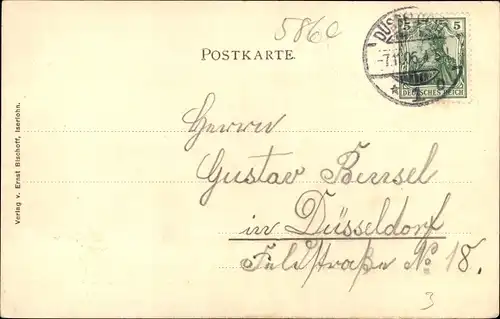 5860
POSTKARTE.
DÜSSEL
5 5
-7.11.05.
DEUTSCHES REICH
Herrn
Gustav Bensel
in Düsseldorf
Feldstraße No 18.
3
Verlag v. Ernst Bischoff, Iserlohn.